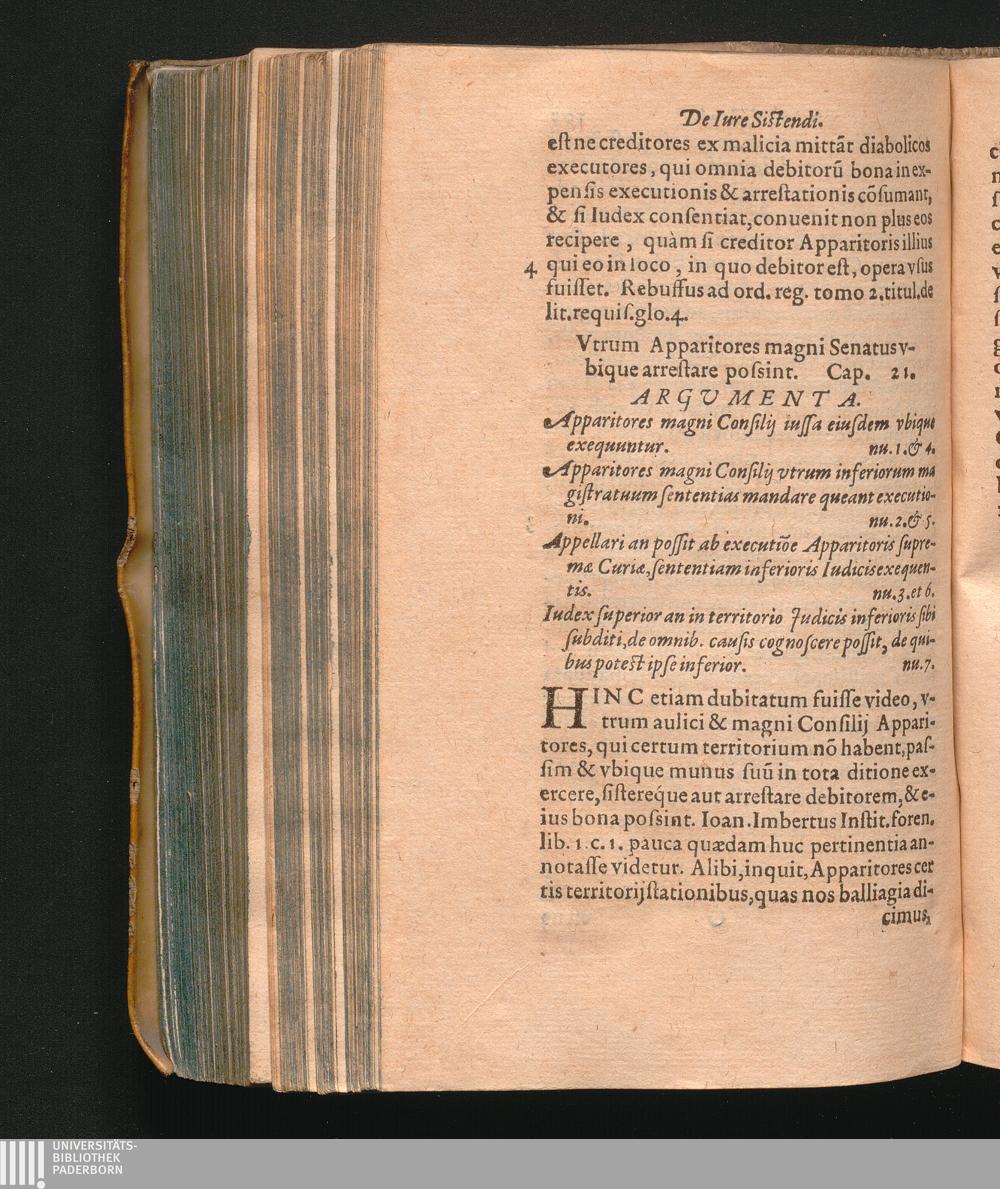 De Iure Sistendi.
est ne creditores ex malicia mittāt diabolicos
executores, qui omnia debitorū bona in ex-
pensis executionis & arrestationis cōsumant,
& si Iudex consentiat, conuenit non plus eos
recipere, quàm si creditor Apparitoris illius
4 qui eo in loco, in quo debitor est, opera vsus
fuisset. Rebuffus ad ord. reg. tomo 2. titul. de
lit. requis. glo. 4.
Vtrum Apparitores magni Senatus v-
bique arrestare possint. Cap. 21.
ARGVMENTA.
Apparitores magni Consilij iussa eiusdem vbique
exequuntur. nu. 1. & 4.
Apparitores magni Consilij vtrum inferiorum ma
gistratuum sententias mandare queant executio-
ni. nu. 2. & 5.
Appellari an possit ab executiōe Apparitoris supre-
mæ Curiæ, sententiam inferioris Iudicis exequen-
tis. nu. 3. et 6.
Iudex superior an in territorio Judicis inferioris sibi
subditi, de omnib. causis cognoscere possit, de qui-
bus potest ipse inferior. nu. 7.
HINC etiam dubitatum fuisse video, v-
trum aulici & magni Consilij Appari-
tores, qui certum territorium nō habent, pas-
sim & vbique munus suū in tota ditione ex-
ercere, sistereq́ue aut arrestare debitorem, & e-
ius bona possint. Ioan. Imbertus Instit. foren.
lib. 1. c. 1. pauca quædam huc pertinentia an-
notasse videtur. Alibi, inquit, Apparitores cer
tis territorij stationibus, quas nos balliagia di-
cimus,
UNIVERSITÄTS-
BIBLIOTHEK
PADERBORN